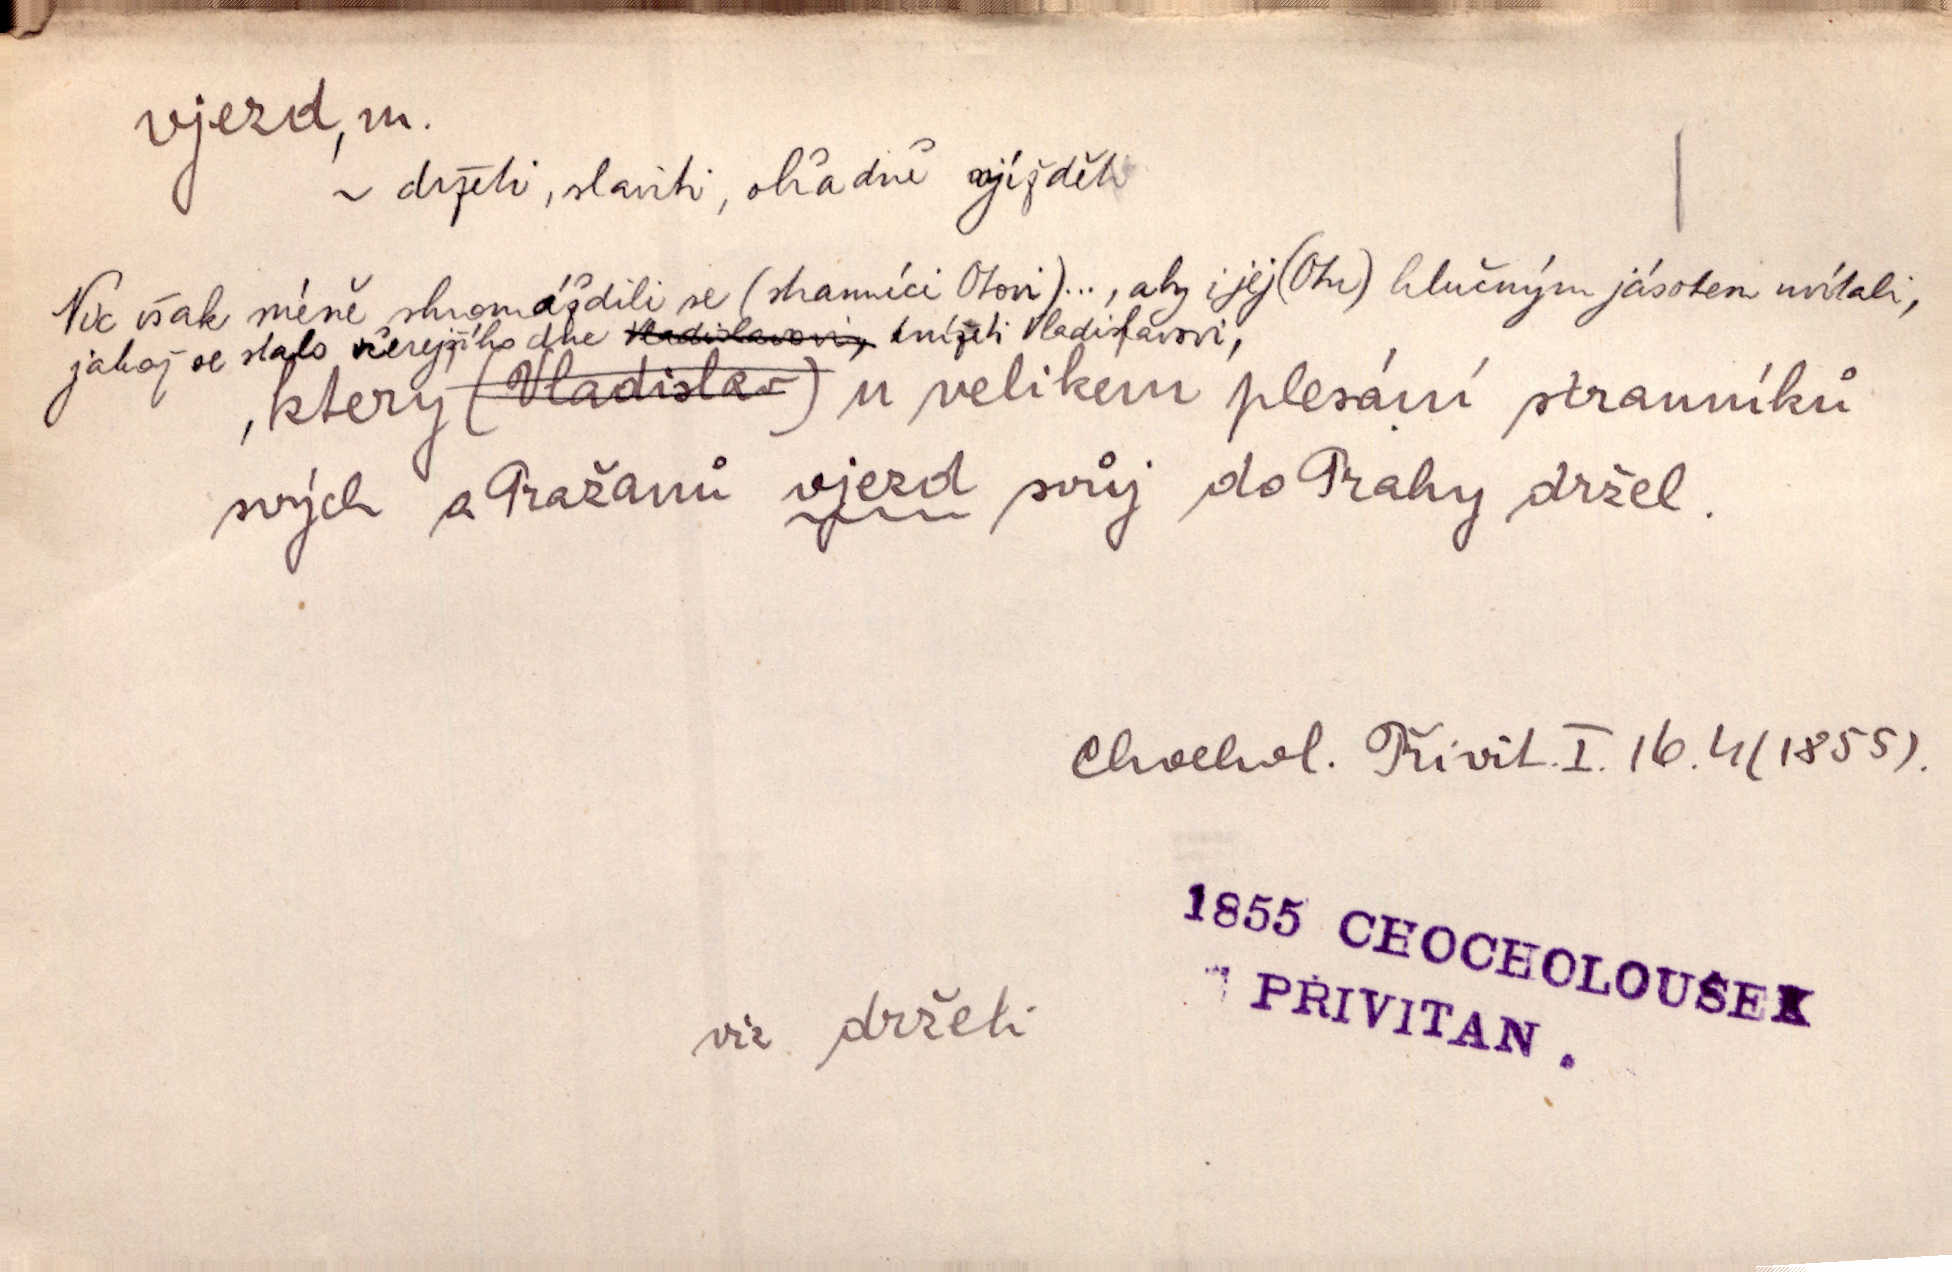 vjezd, m.
~ držeti, slaviti, obřadně vjížděti
Nic však méně shromáždili se (stranníci Otovi)..., aby i jej (Otu) hlučným jásotem uvítali,
jakož se stalo včerejšího dne Vladislavovi, knížeti Vladislavovi,
, který (Vladislav) u velikem plesání stranníků
svých a Pražanů vjezd svůj do Prahy držel.
Chochol. Přivit. I. 16. 4 (1855).
1855 CHOCHOLOUŠEK
PŘIVITAN .
viz držeti